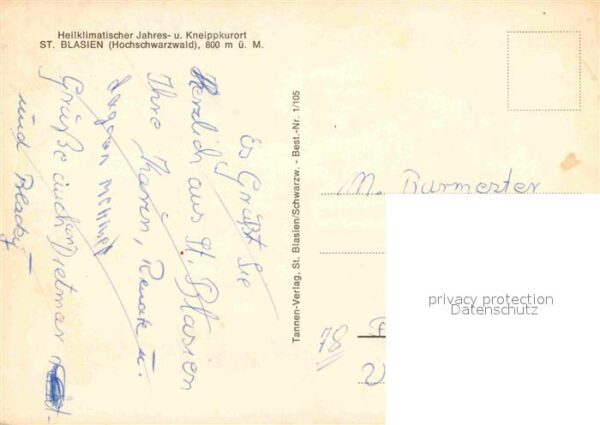 Heilklimatischer Jahres- u. Kneippkurort
ST. BLASIEN (Hochschwarzwald), 800 m ü. M.
Es Grüßt Sie
Herzlich aus St. Blasien
Ihre Karin, Renate u.
Grüße auch an Dietmar
und Blacky
Tannen-Verlag, St. Blasien/Schwarzw. - Best.-Nr. 1/105
M. Burmester
78
privacy protection
Datenschutz